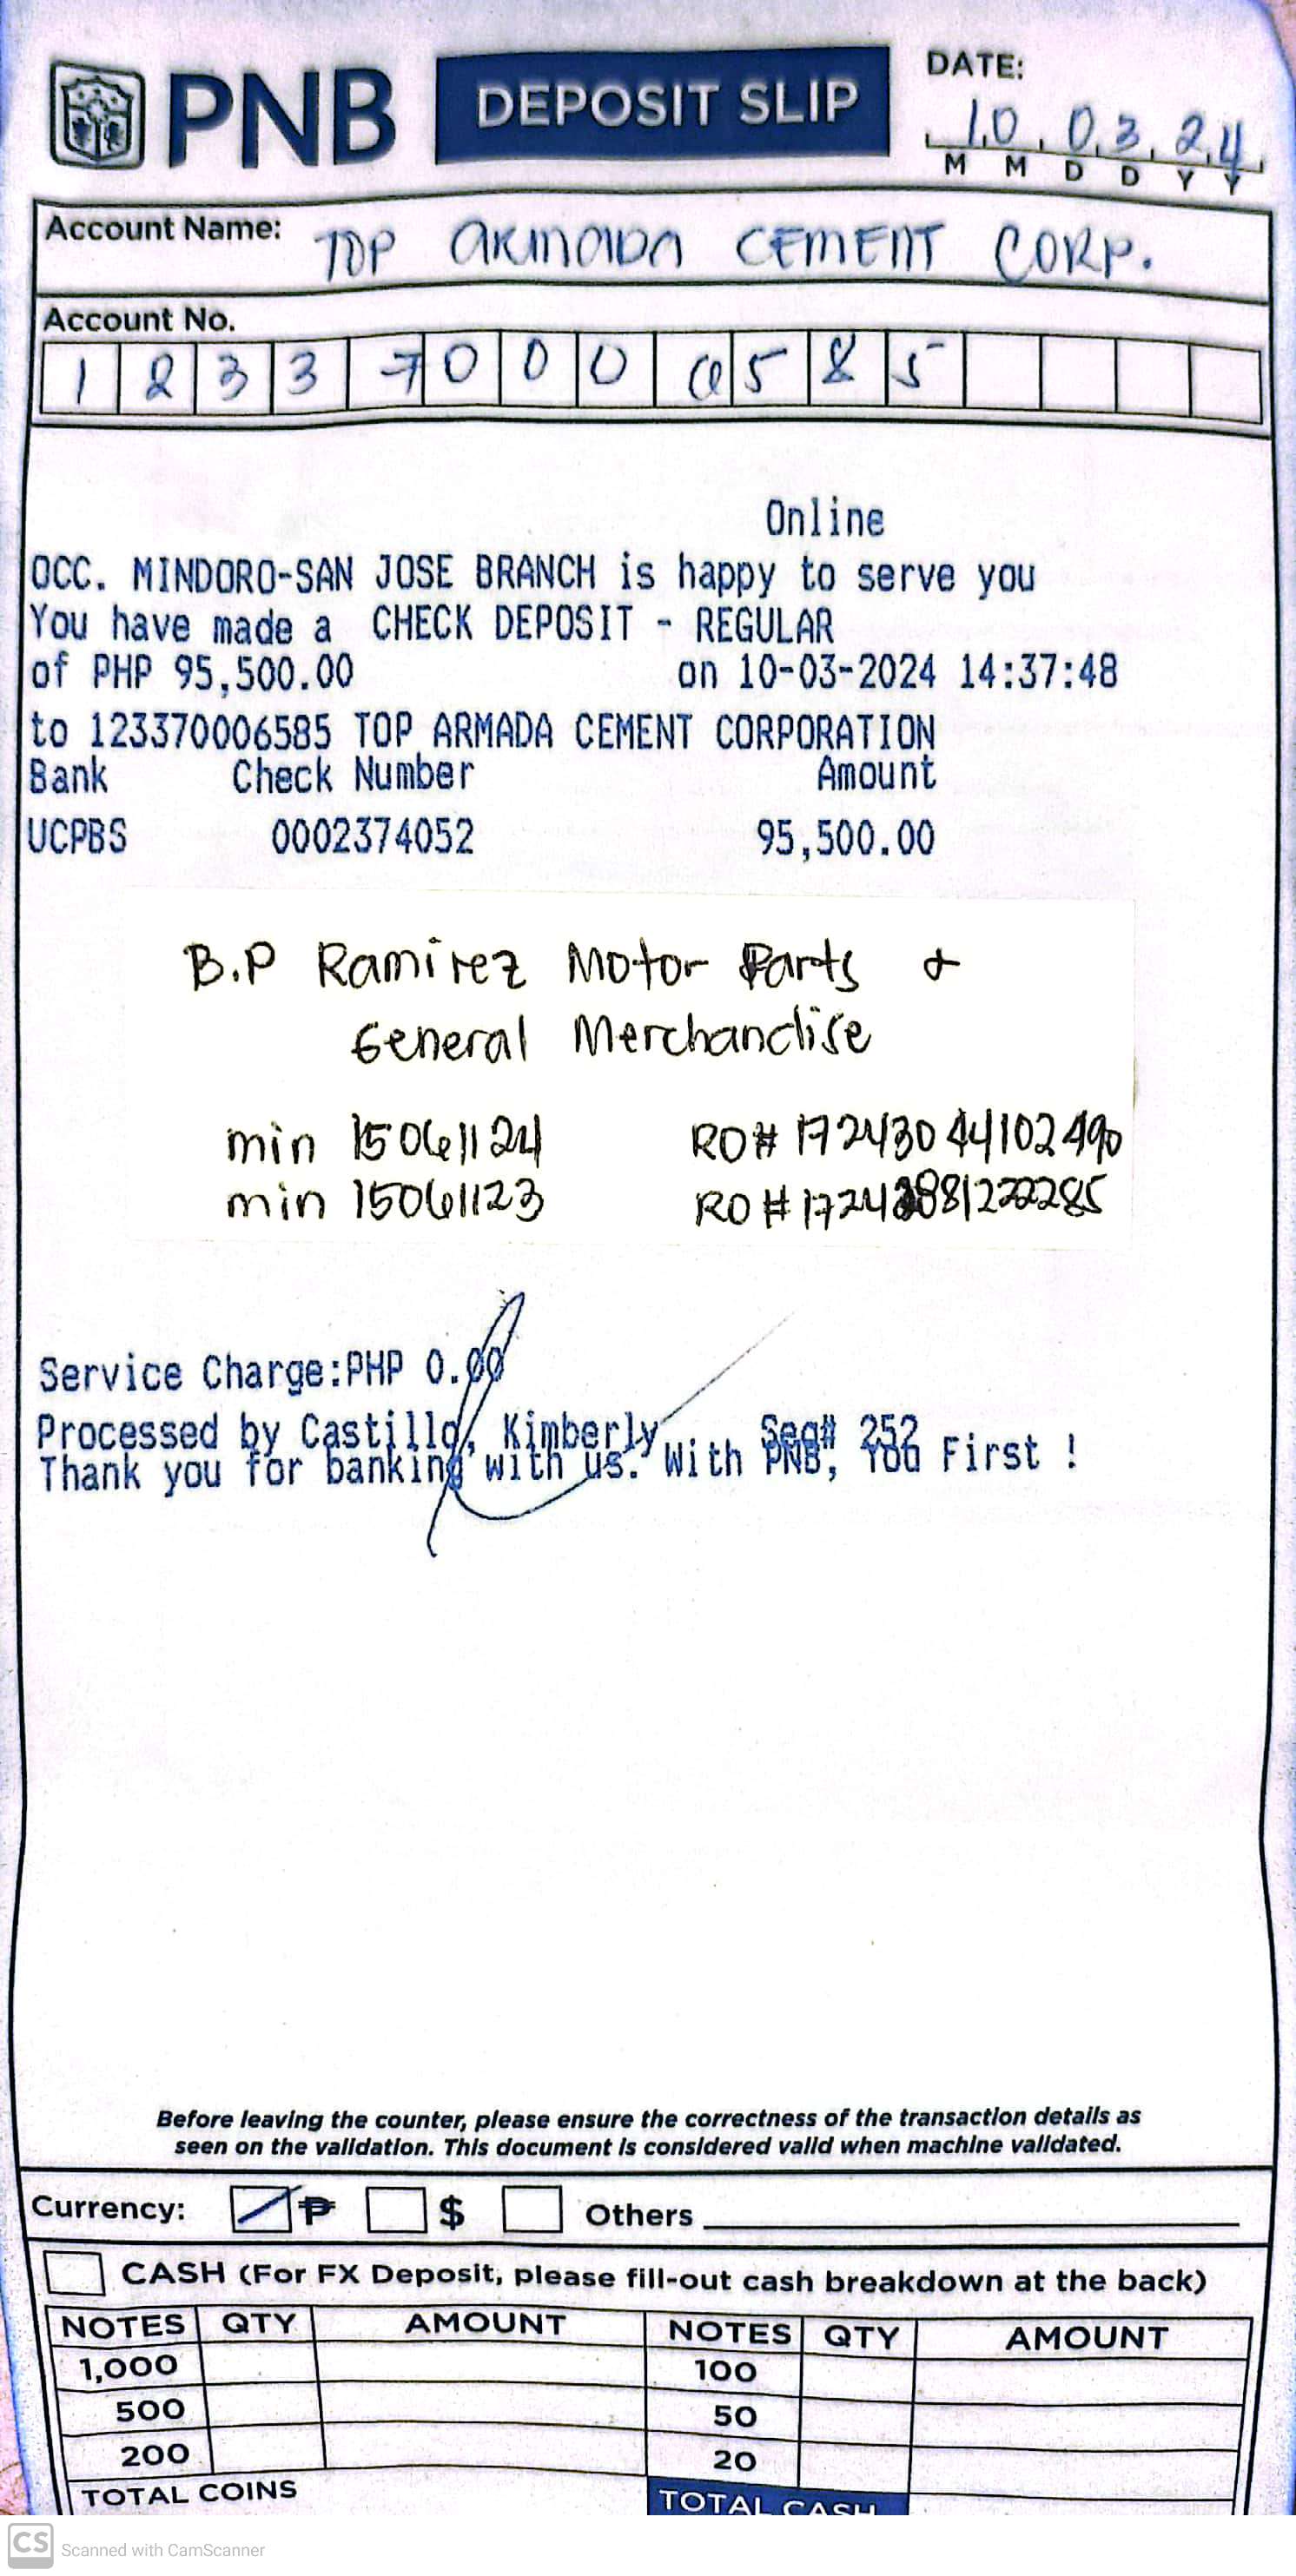 PNB DEPOSIT SLIP
DATE:
10 03 24
M M D D Y Y
Account Name: TOP ARMADA CEMENT CORP.
Account No.
1 2 3 3 7 0 0 0 6 5 8 5
Online
OCC. MINDORO-SAN JOSE BRANCH is happy to serve you
You have made a CHECK DEPOSIT - REGULAR
of PHP 95,500.00 on 10-03-2024 14:37:48
to 123370006585 TOP ARMADA CEMENT CORPORATION
Bank Check Number Amount
UCPBS 0002374052 95,500.00
B.P Ramirez Motor Parts &
General Merchandise
min 15061124 RO# 17243044102490
min 15061123 RO#
Service Charge:PHP 0.00
Processed by Castillo, Kimberly Seq# 252
Thank you for banking with us. With PNB, You First !
Before leaving the counter, please ensure the correctness of the transaction details as
seen on the validation. This document is considered valid when machine validated.
Currency: ₱ $ Others
CASH (For FX Deposit, please fill-out cash breakdown at the back)
NOTES QTY AMOUNT NOTES QTY AMOUNT
1,000 100
500 50
200 20
TOTAL COINS TOTAL CASH
CS Scanned with CamScanner